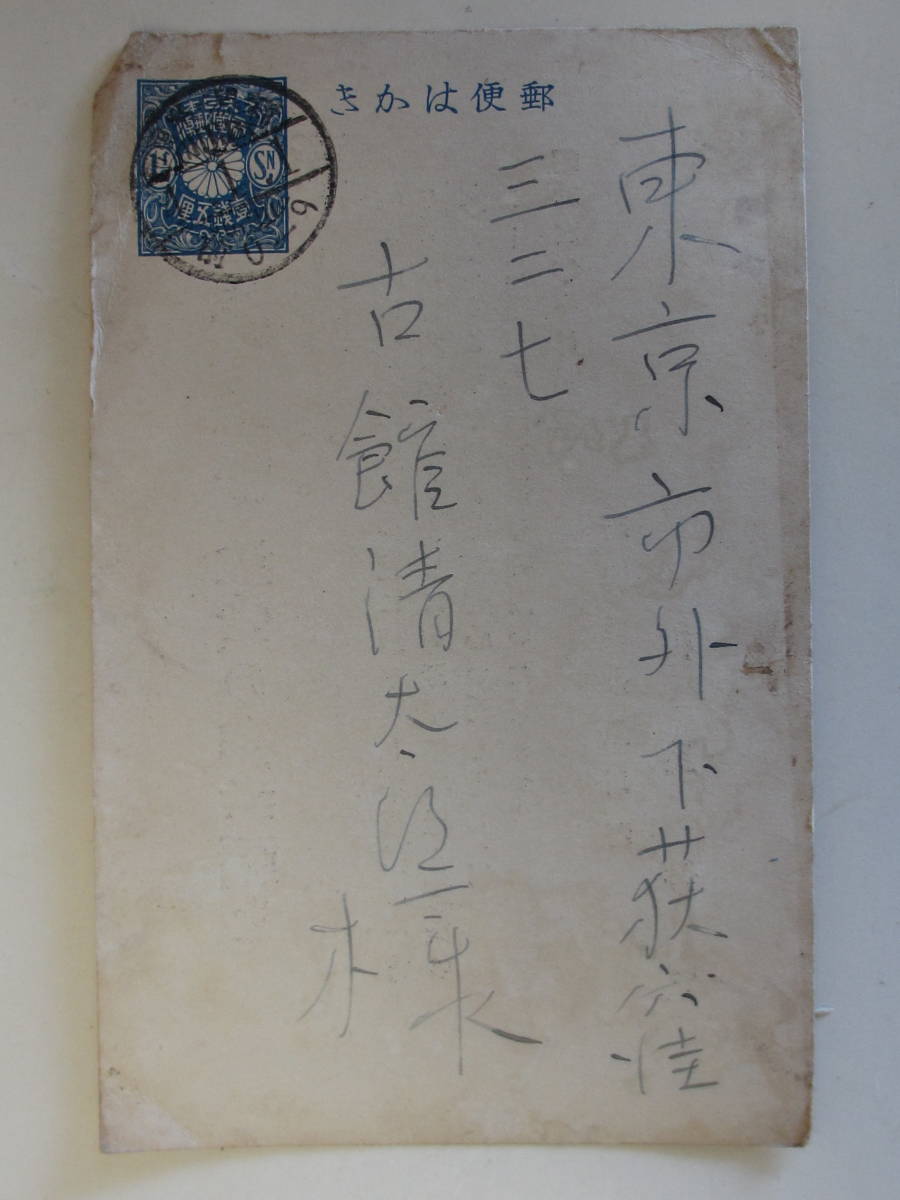 郵便はかき
大日本
帝國郵便
1½
SN
壹錢五厘
6
東京市外下荻窪
三二七
古館清太郎様